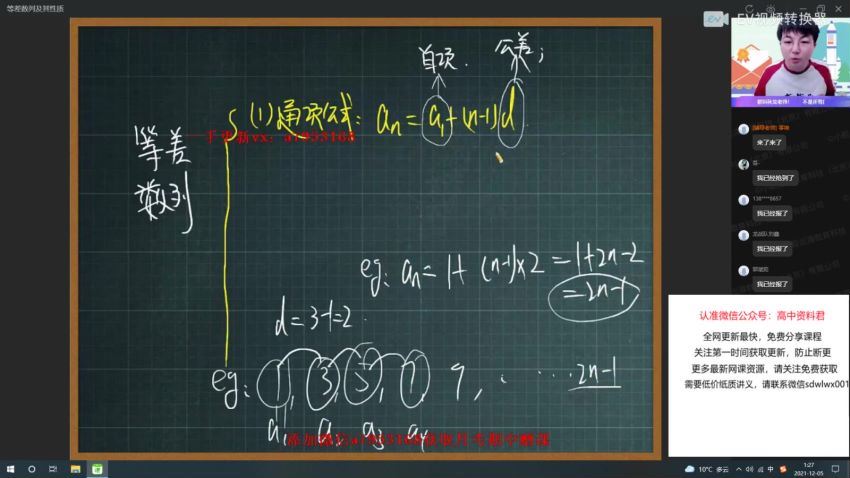 等差数列及其性质
EV视频转换器
首项.
公差;
(1)通项公式: aₙ = a₁ + (n-1)d
等差
数列
eg: aₙ = 1 + (n-1)×2 = 1+2n-2
= 2n-1
d = 3-1 = 2.
eg: 1, 3, 5, 7, 9, ...... 2n-1
a₁ a₂ a₃ a₄
来了来了
我已经抢到了
138****8657
我已经报了
我已经报了
我已经报了
认准微信公众号：高中资料君
全网更新最快，免费分享课程
关注第一时间获取更新，防止断更
更多最新网课资源，请关注免费获取
需要低价纸质讲义，请联系微信sdwlwx001
10°C 多云
中
1:27
2021-12-05